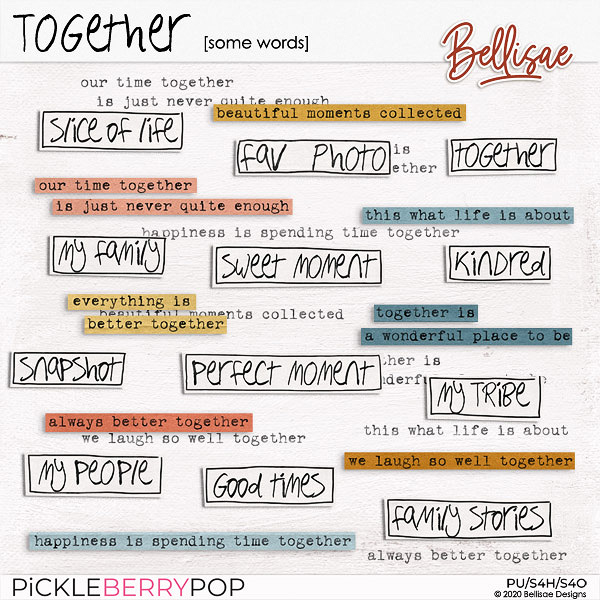 Together [some words]
Bellisae
our time together
is just never quite enough
beautiful moments collected
Slice of life
fav Photo
is
ether
together
our time together
is just never quite enough
this what life is about
happiness is spending time together
My family
Sweet Moment
Kindred
everything is
beautiful moments collected
better together
together is
a wonderful place to be
ther is
Snapshot
Perfect Moment
My Tribe
always better together
we laugh so well together
this what life is about
My People
we laugh so well together
Good times
family stories
happiness is spending time together
always better together
PiCKLEBERRYPOP
PU/S4H/S4O
© 2020 Bellisae Designs